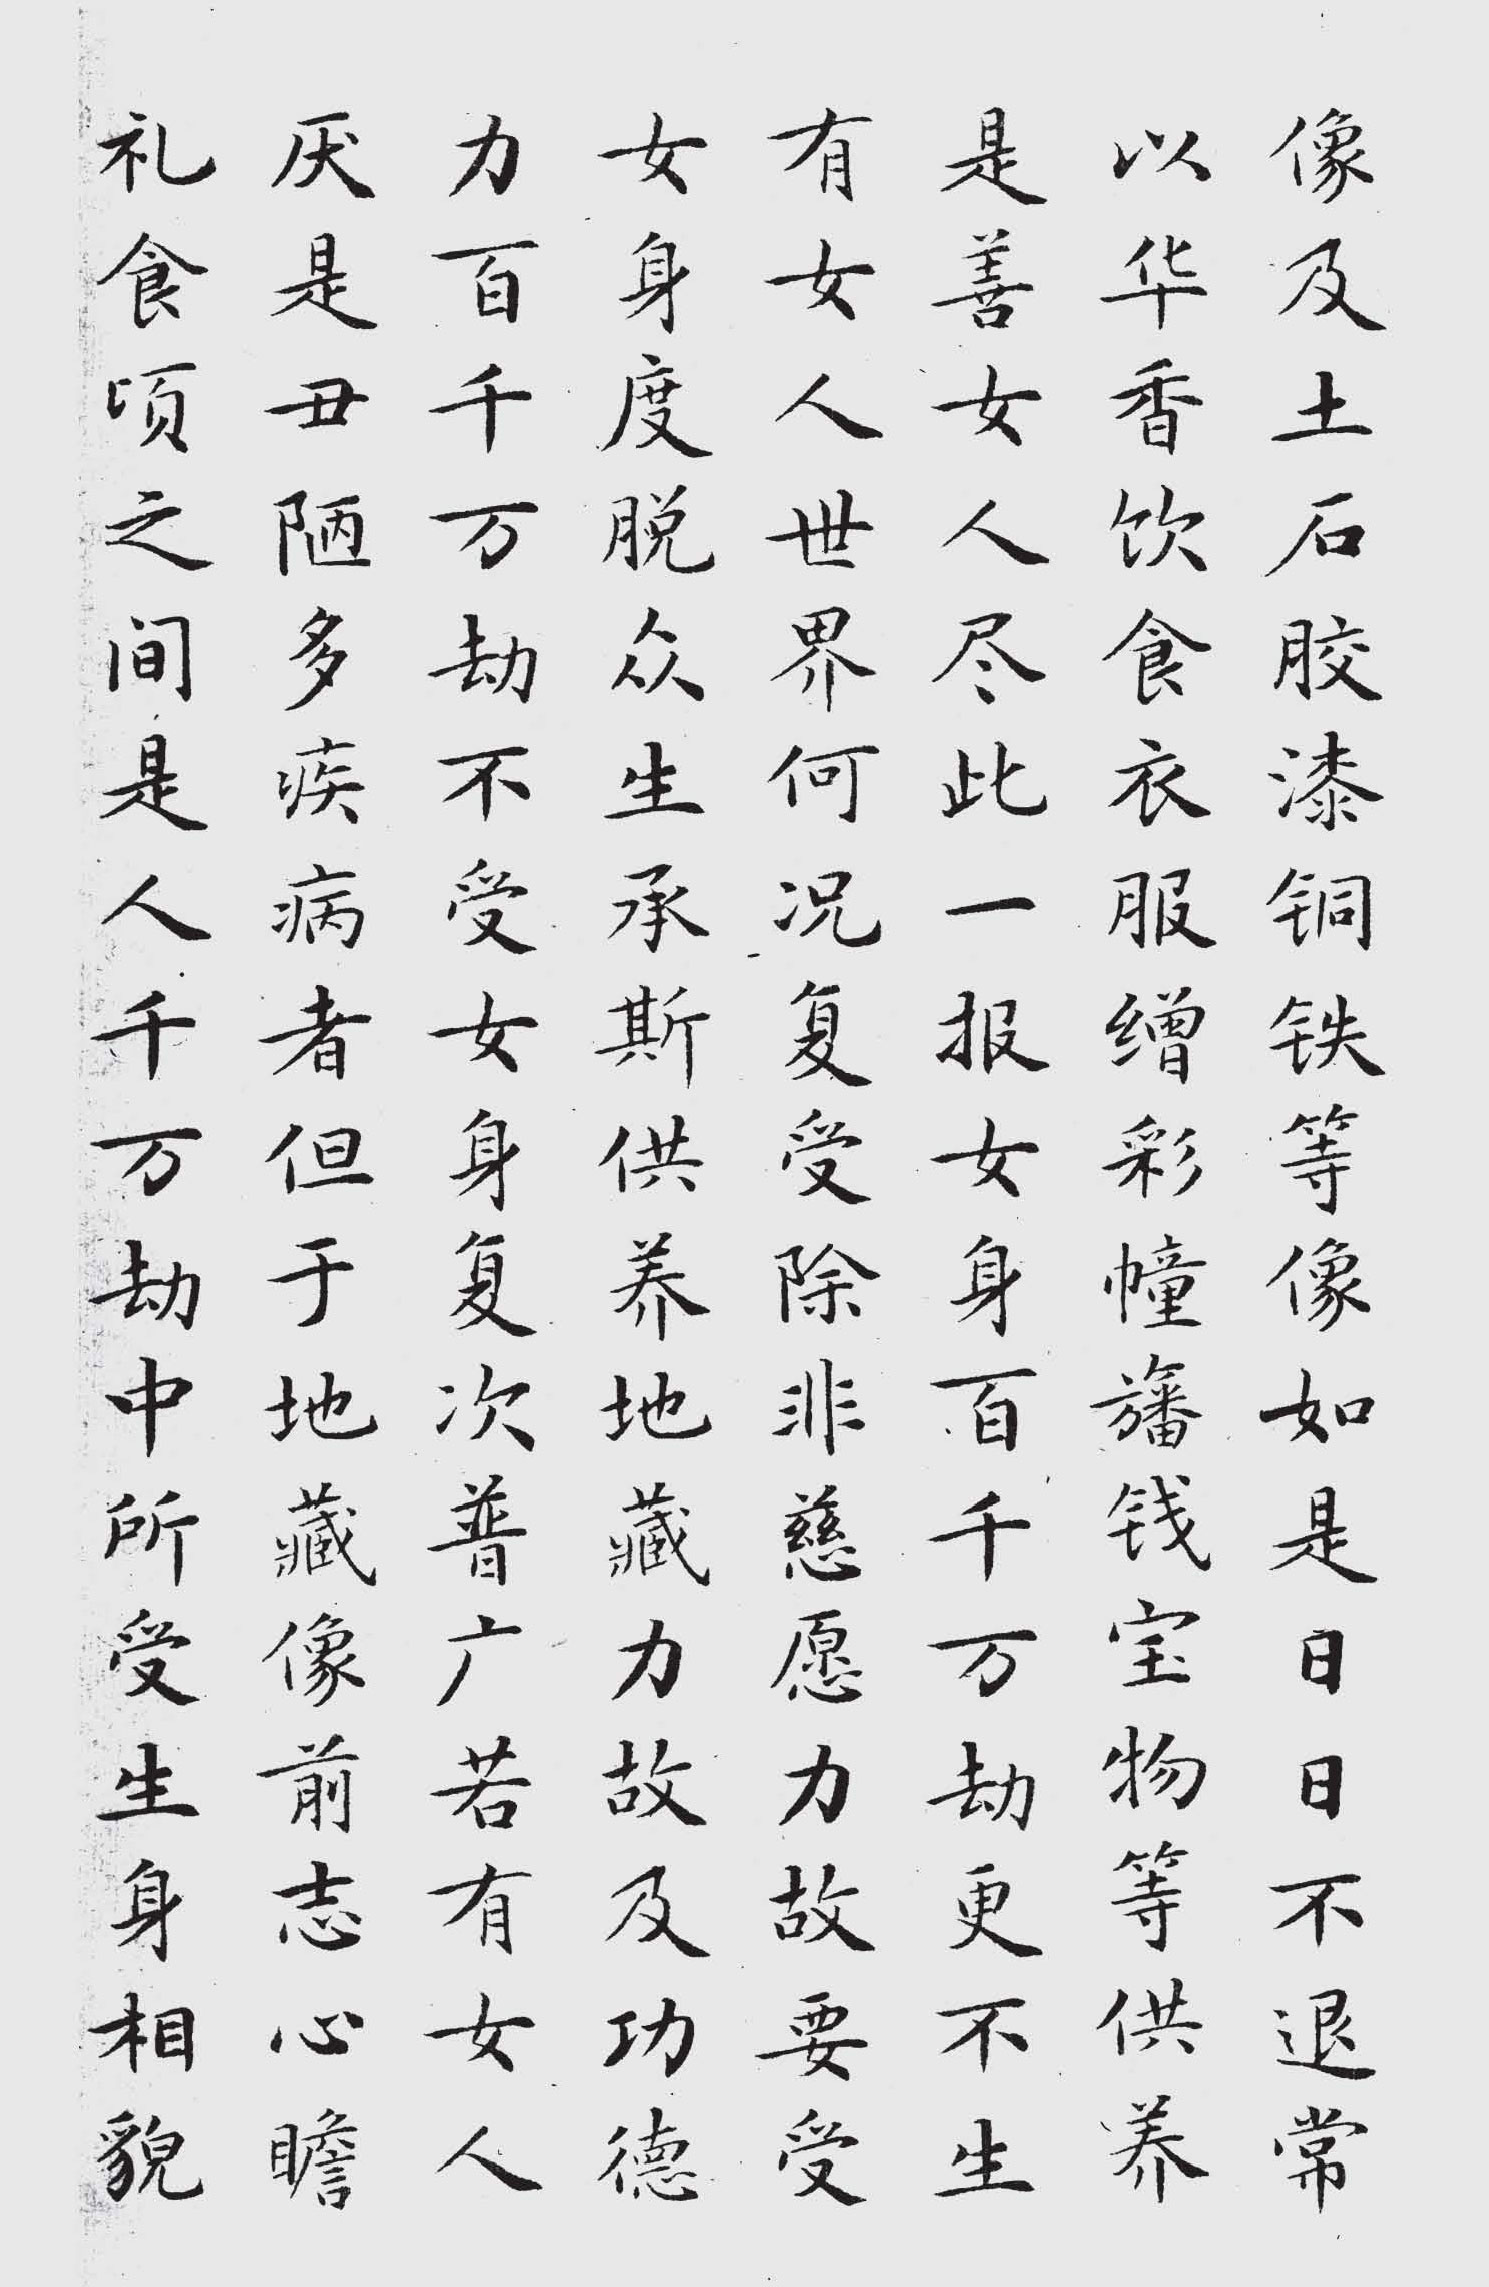 像及土石胶漆铜铁等像如是日日不退常
以华香饮食衣服缯彩幢旛钱宝物等供养
是善女人尽此一报女身百千万劫更不生
有女人世界何况复受除非慈愿力故要受
女身度脱众生承斯供养地藏力故及功德
力百千万劫不受女身复次普广若有女人
厌是丑陋多疾病者但于地藏像前志心瞻
礼食顷之间是人千万劫中所受生身相貌